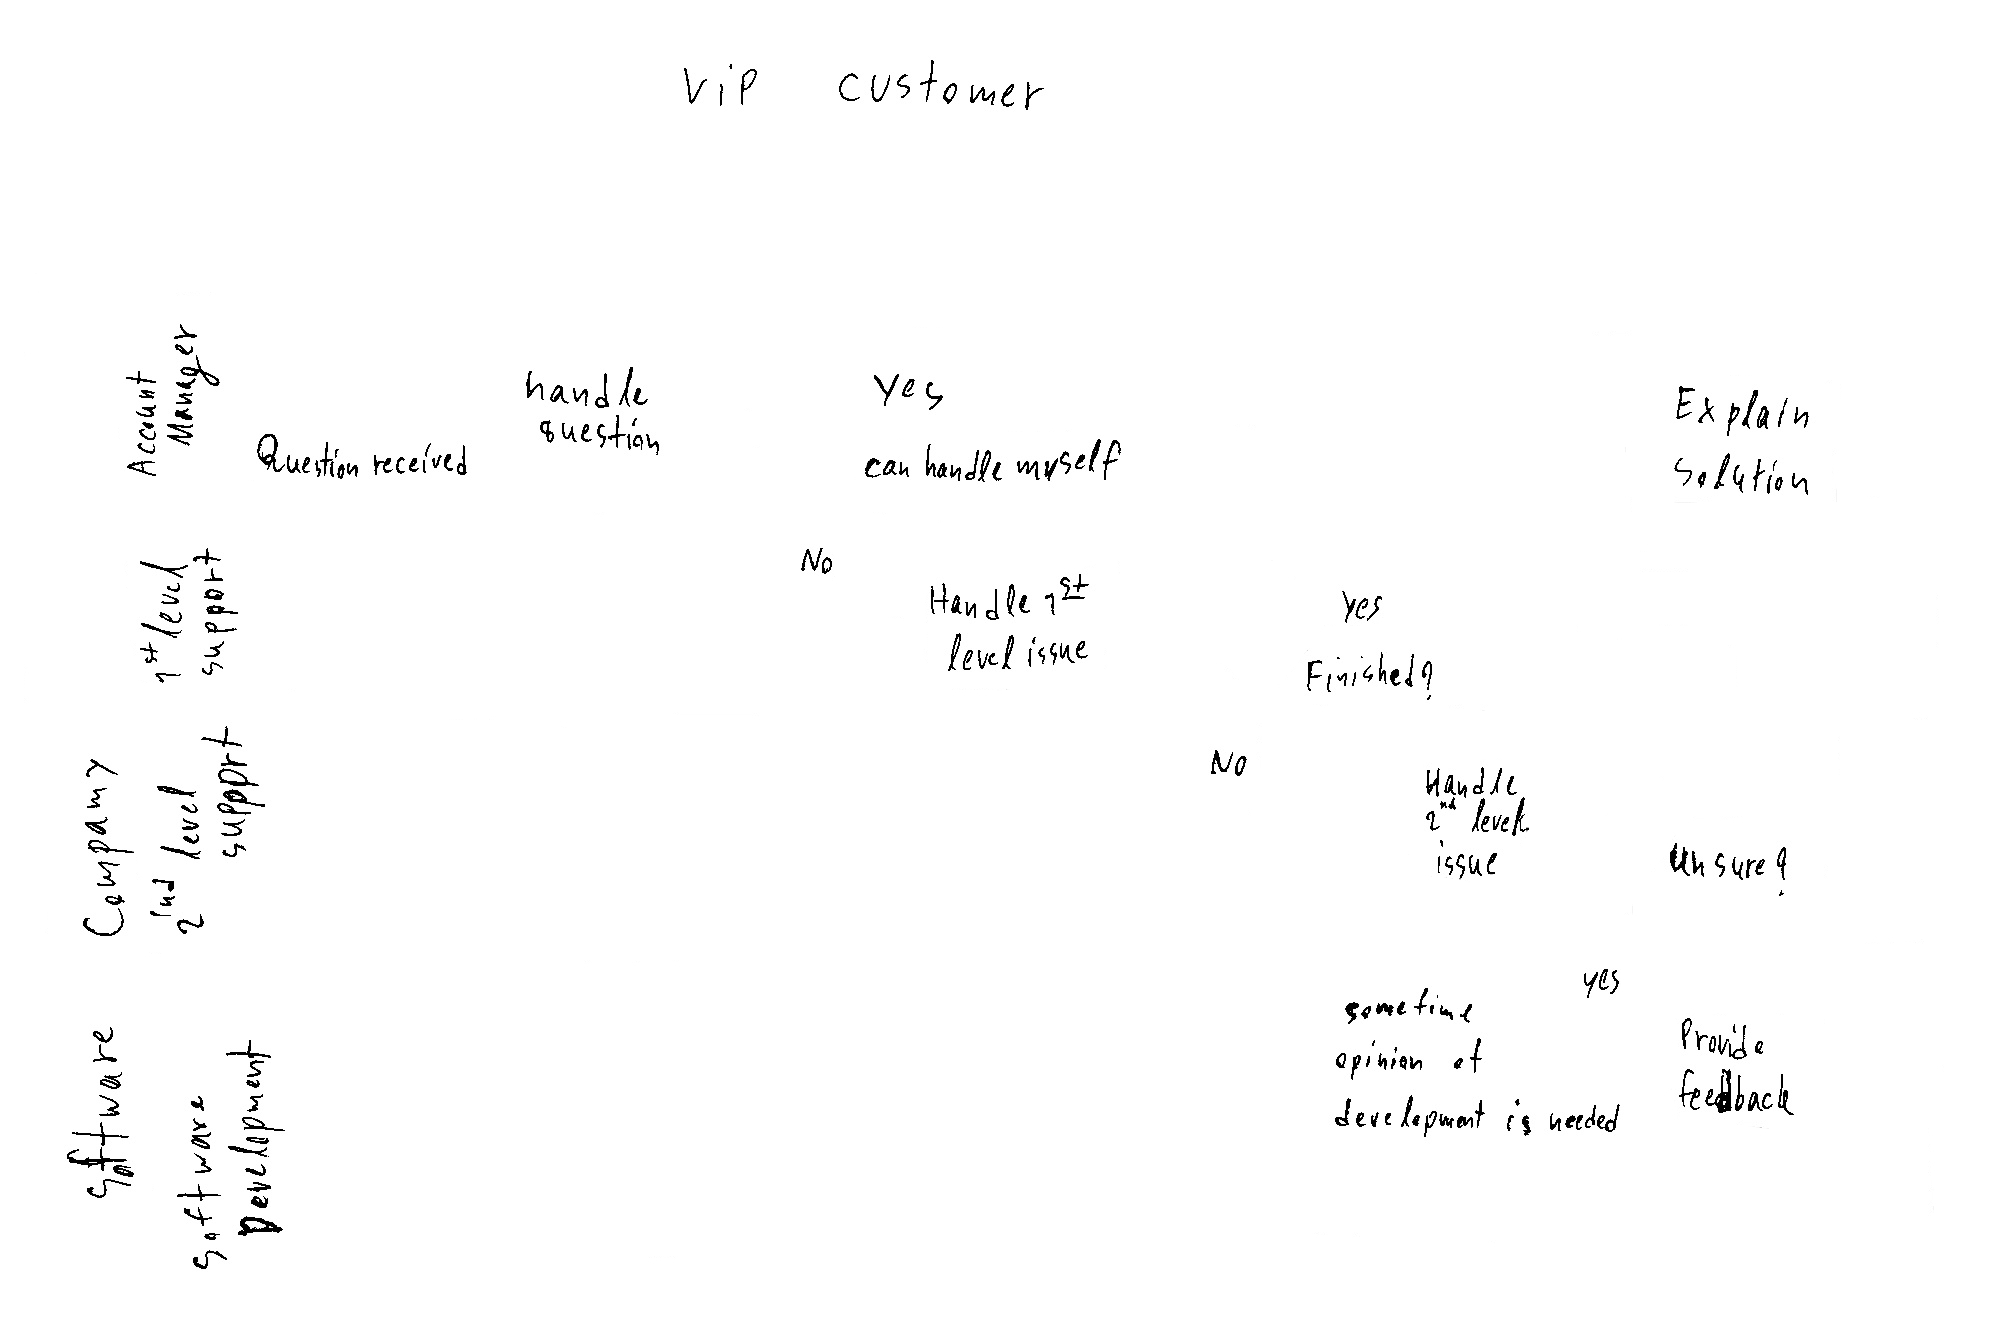 VIP customer
Account
Manager
Question received
handle
question
yes
can handle myself
Explain
solution
1st level
support
No
Handle 1st
level issue
yes
Finished?
Company
2nd level
support
No
Handle
2nd level
issue
unsure?
Software
Software
Development
sometime
opinion of
development is needed
yes
Provide
feedback